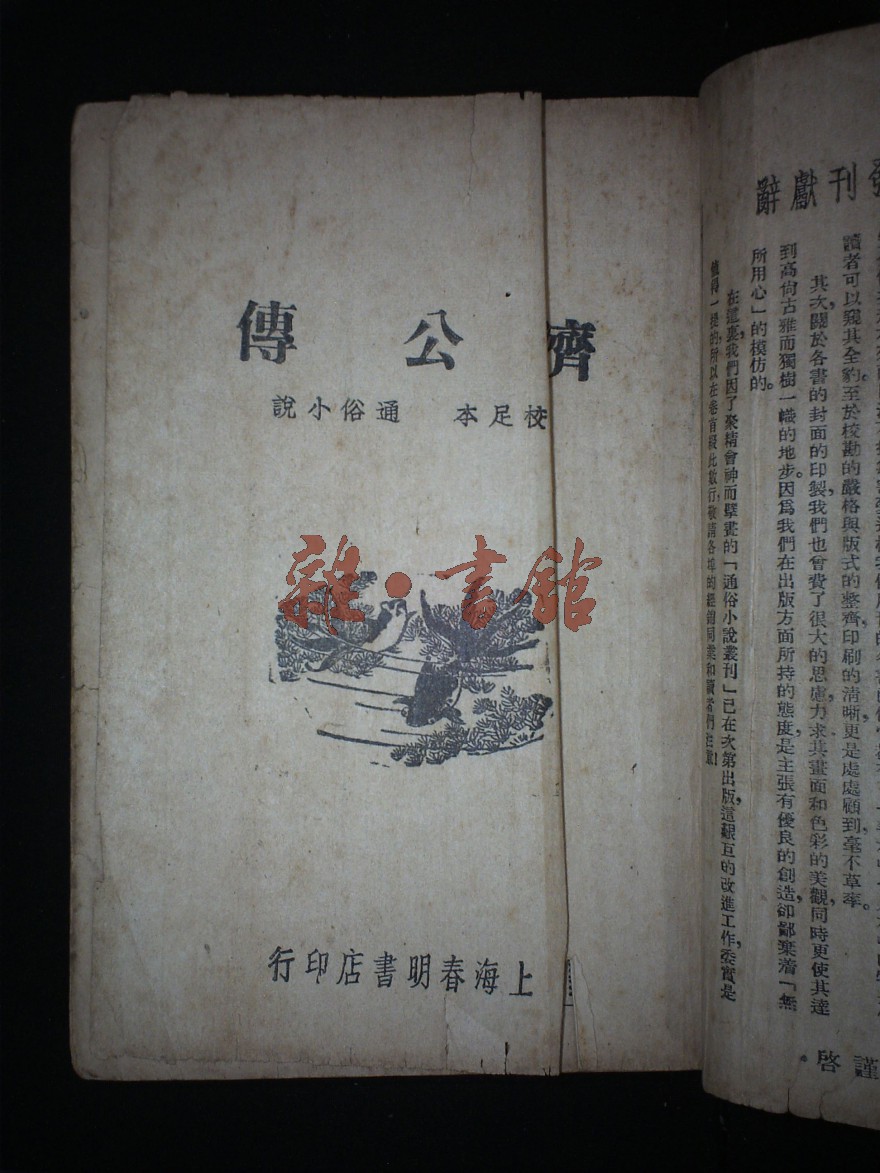 發刊獻辭
讀者可以窺其全豹,至於校勘的嚴格與版式的整齊,印刷的清晰,更是處處顧到,毫不草率。
其次,關於各書的封面的印製,我們也會費了很大的思慮,力求其畫面和色彩的美觀,同時更使其達
到高尙古雅而獨樹一幟的地步。因爲我們在出版方面所持的態度,是主張有優良的創造,卻鄙棄着「無
所用心」的模仿的。
在這裏,我們因了聚精會神而擘畫的「通俗小說叢刊」已在次第出版,這艱巨的改進工作,委實是
值得一提的,所以在卷首綴此數行,敬請各埠的經銷同業和讀者們注意!
謹啓。
濟公傳
校足本 通俗小說
雜·書館
上海春明書店印行